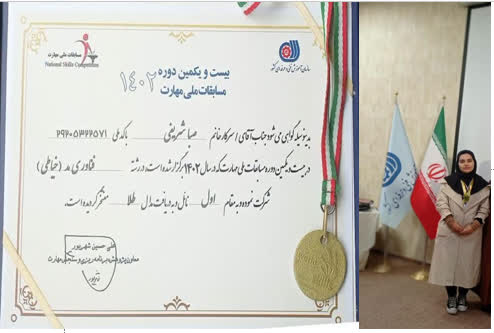 مسابقات ملی مهارت
National Skills Competition
سازمان آموزش فنی و حرفه‌ای کشور
بیست و یکمین دوره
مسابقات ملی مهارت
۱۴۰۲
بدینوسیله گواهی می شود جناب آقای / سرکار خانم صبا شریفی با کد ملی ۲۹۲۰۵۳۲۲۵۷۱
در بیست و یکمین دوره مسابقات ملی مهارت که در سال ۱۴۰۲ برگزار شده است، در رشته فناوری مد (خیاطی)
شرکت نموده و به مقام اول نائل و به دریافت مدال طلا مفتخر گردیده است.
علی حسین شهریور